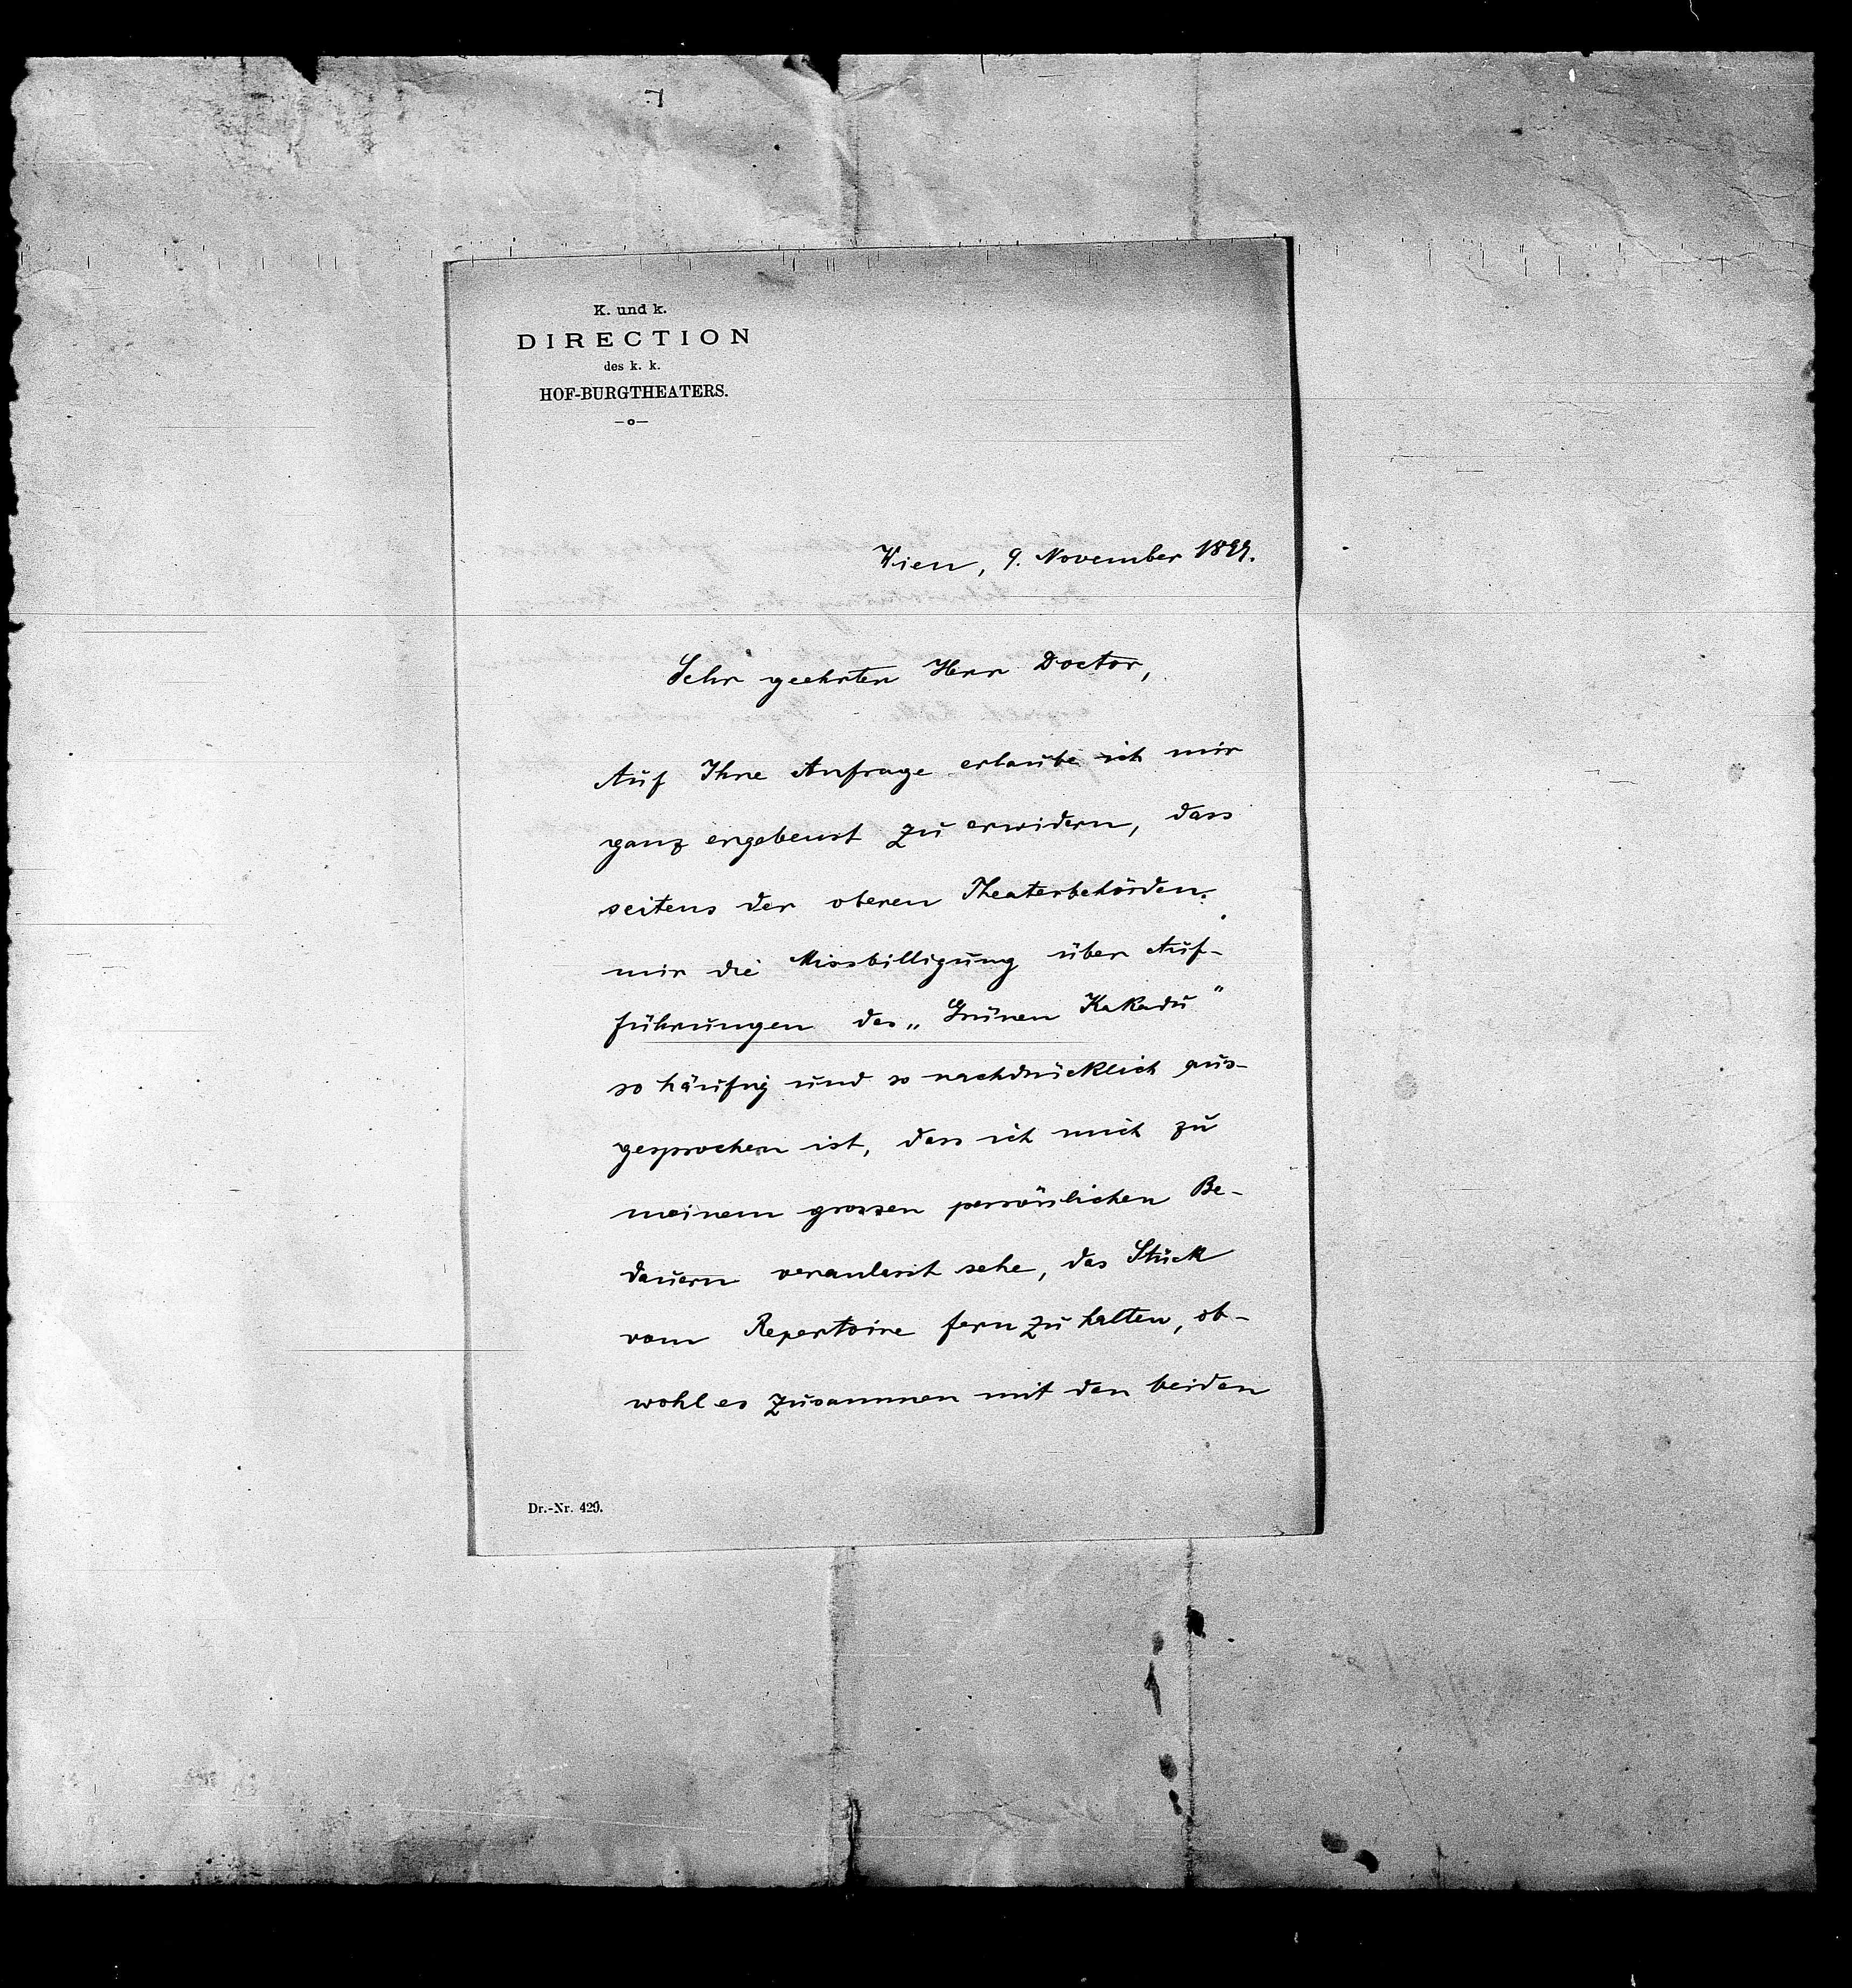 K. und k.
DIRECTION
des k. k.
HOF-BURGTHEATERS.
Wien, 9. November 1899.
Sehr geehrter Herr Doctor,
Auf Ihre Anfrage erlaube ich mir
ganz ergebenst zu erwidern, dass
seitens der oberen Theaterbehörden
mir die Missbilligung über Auf-
führungen des „Grünen Kakadu"
so häufig und so nachdrücklich aus-
gesprochen ist, dass ich mich zu
meinem grossen persönlichen Be-
dauern veranlasst sehe, das Stück
vom Repertoire fern zu halten, ob-
wohl es zusammen mit den beiden
Dr.-Nr. 429.